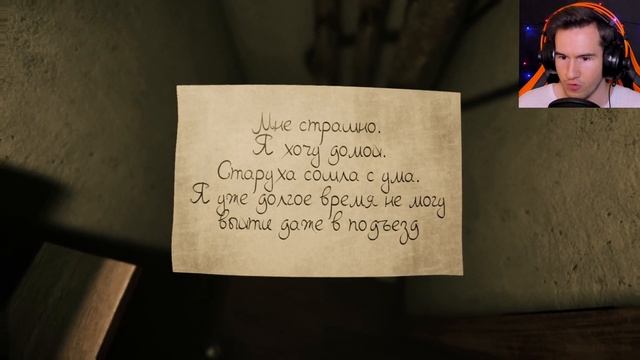 Мне страшно.
Я хочу домой.
Старуха сошла с ума.
Я уже долгое время не могу
выйти даже в подъезд